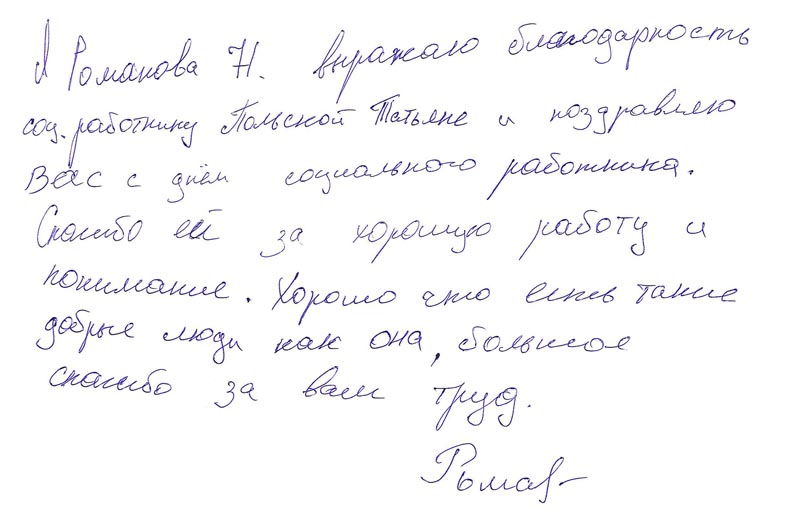 Я Романова Н. выражаю благодарность
соц. работнику Польской Татьяне и поздравляю
Вас с днём социального работника.
Спасибо ей за хорошую работу и
понимание. Хорошо что есть такие
добрые люди как она, большое
спасибо за ваш труд.